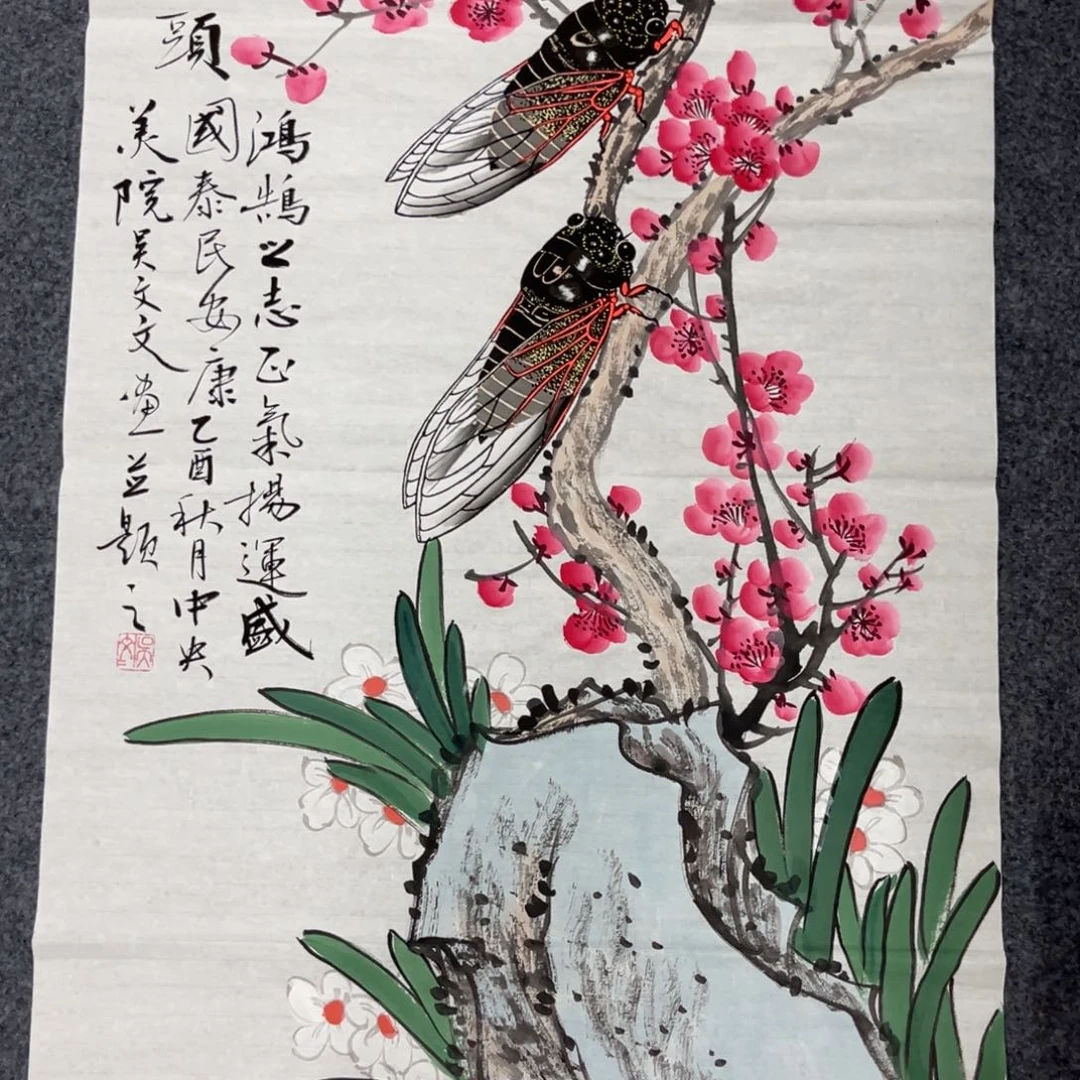 頭
鴻鵠之志正氣揚運盛
國泰民安康乙酉秋月中央
美院吴文文画並题之